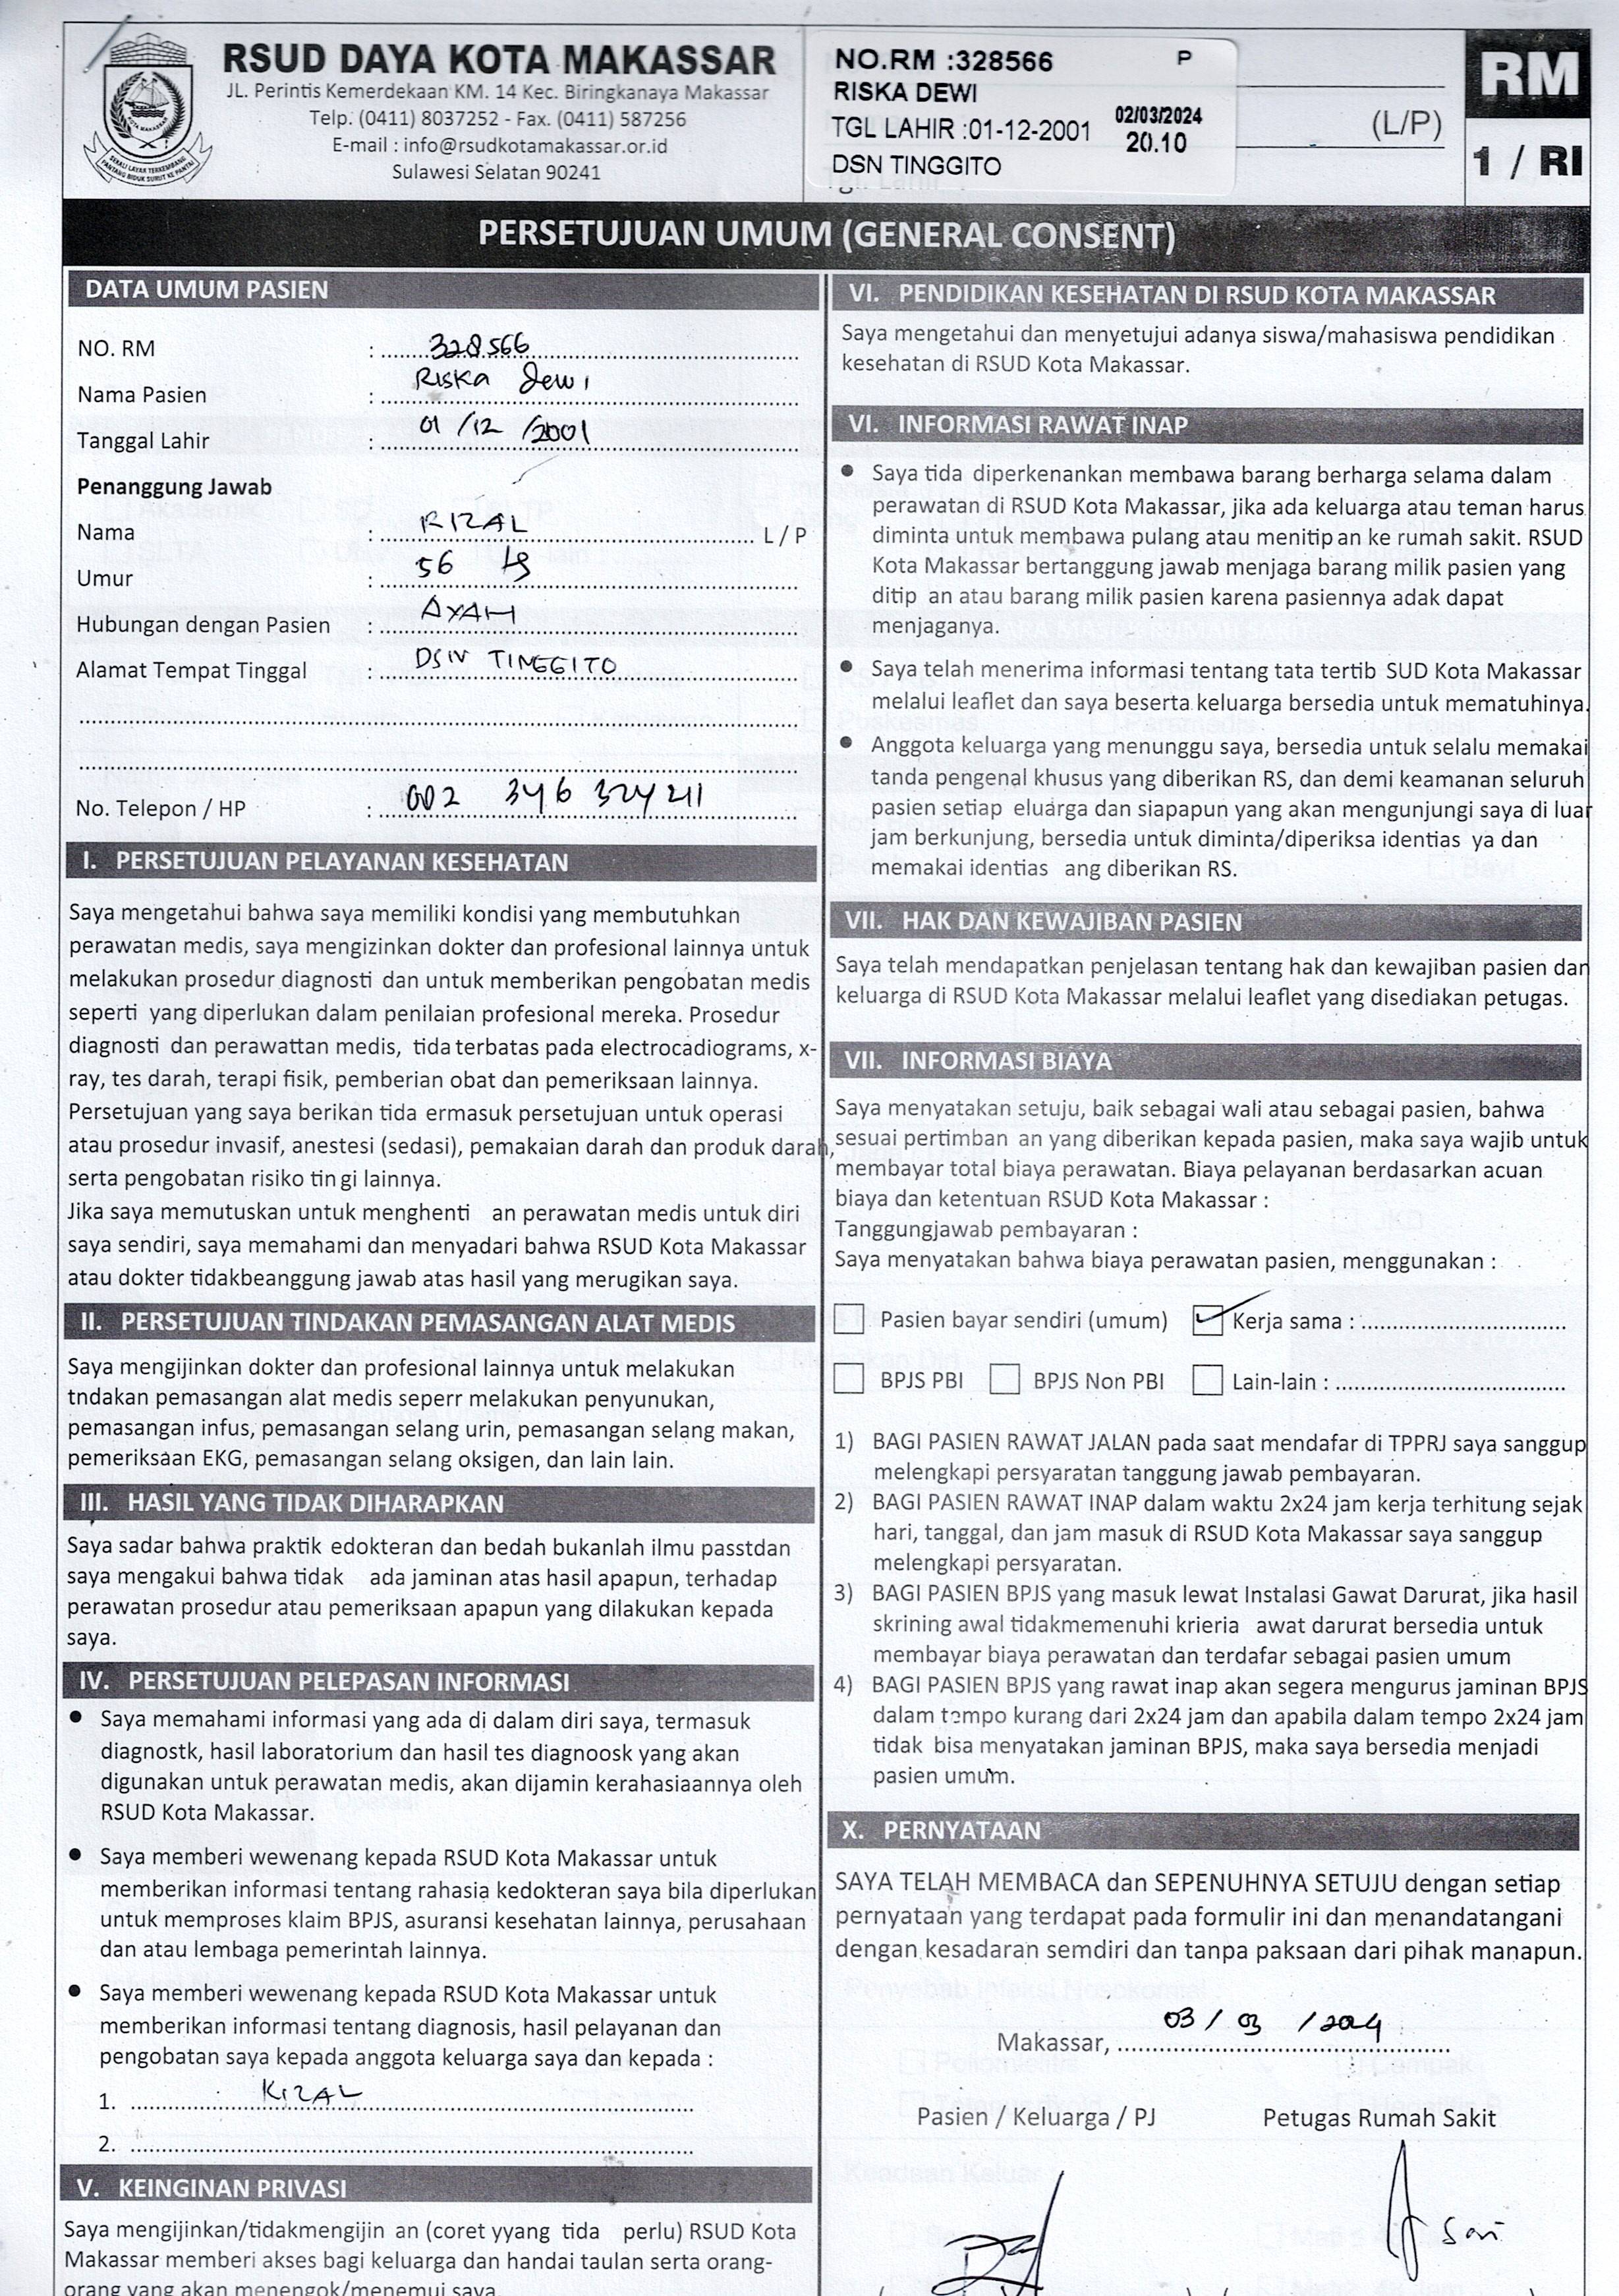 RSUD DAYA KOTA MAKASSAR
JL. Perintis Kemerdekaan KM. 14 Kec. Biringkanaya Makassar
Telp. (0411) 8037252 - Fax. (0411) 587256
E-mail : info@rsudkotamakassar.or.id
Sulawesi Selatan 90241
NO.RM :328566 P
RISKA DEWI
TGL LAHIR :01-12-2001 02/03/2024
20.10
DSN TINGGITO
(L/P)
RM
1 / RI
PERSETUJUAN UMUM (GENERAL CONSENT)
DATA UMUM PASIEN
NO. RM : 328566
Nama Pasien : Riska Dewi
Tanggal Lahir : 01 /12 /2001
Penanggung Jawab
Nama : RIZAL L / P
Umur : 56
Hubungan dengan Pasien : AYAH
Alamat Tempat Tinggal : DSN TINGGITO
No. Telepon / HP :
I. PERSETUJUAN PELAYANAN KESEHATAN
Saya mengetahui bahwa saya memiliki kondisi yang membutuhkan
perawatan medis, saya mengizinkan dokter dan profesional lainnya untuk
melakukan prosedur diagnosti dan untuk memberikan pengobatan medis
seperti yang diperlukan dalam penilaian profesional mereka. Prosedur
diagnosti dan perawattan medis, tida terbatas pada electrocadiograms, x-
ray, tes darah, terapi fisik, pemberian obat dan pemeriksaan lainnya.
Persetujuan yang saya berikan tida ermasuk persetujuan untuk operasi
atau prosedur invasif, anestesi (sedasi), pemakaian darah dan produk darah,
serta pengobatan risiko tin gi lainnya.
Jika saya memutuskan untuk menghenti an perawatan medis untuk diri
saya sendiri, saya memahami dan menyadari bahwa RSUD Kota Makassar
atau dokter tidakbeanggung jawab atas hasil yang merugikan saya.
II. PERSETUJUAN TINDAKAN PEMASANGAN ALAT MEDIS
Saya mengijinkan dokter dan profesional lainnya untuk melakukan
tndakan pemasangan alat medis seperr melakukan penyunukan,
pemasangan infus, pemasangan selang urin, pemasangan selang makan,
pemeriksaan EKG, pemasangan selang oksigen, dan lain lain.
III. HASIL YANG TIDAK DIHARAPKAN
Saya sadar bahwa praktik edokteran dan bedah bukanlah ilmu passtdan
saya mengakui bahwa tidak ada jaminan atas hasil apapun, terhadap
perawatan prosedur atau pemeriksaan apapun yang dilakukan kepada
saya.
IV. PERSETUJUAN PELEPASAN INFORMASI
• Saya memahami informasi yang ada di dalam diri saya, termasuk
diagnostk, hasil laboratorium dan hasil tes diagnoosk yang akan
digunakan untuk perawatan medis, akan dijamin kerahasiaannya oleh
RSUD Kota Makassar.
• Saya memberi wewenang kepada RSUD Kota Makassar untuk
memberikan informasi tentang rahasia kedokteran saya bila diperlukan
untuk memproses klaim BPJS, asuransi kesehatan lainnya, perusahaan
dan atau lembaga pemerintah lainnya.
• Saya memberi wewenang kepada RSUD Kota Makassar untuk
memberikan informasi tentang diagnosis, hasil pelayanan dan
pengobatan saya kepada anggota keluarga saya dan kepada :
1. RIZAL
2.
V. KEINGINAN PRIVASI
Saya mengijinkan/tidakmengijin an (coret yyang tida perlu) RSUD Kota
Makassar memberi akses bagi keluarga dan handai taulan serta orang-
orang yang akan menengok/menemui saya.
VI. PENDIDIKAN KESEHATAN DI RSUD KOTA MAKASSAR
Saya mengetahui dan menyetujui adanya siswa/mahasiswa pendidikan
kesehatan di RSUD Kota Makassar.
VI. INFORMASI RAWAT INAP
• Saya tida diperkenankan membawa barang berharga selama dalam
perawatan di RSUD Kota Makassar, jika ada keluarga atau teman harus
diminta untuk membawa pulang atau menitip an ke rumah sakit. RSUD
Kota Makassar bertanggung jawab menjaga barang milik pasien yang
ditip an atau barang milik pasien karena pasiennya adak dapat
menjaganya.
• Saya telah menerima informasi tentang tata tertib SUD Kota Makassar
melalui leaflet dan saya beserta keluarga bersedia untuk mematuhinya.
• Anggota keluarga yang menunggu saya, bersedia untuk selalu memakai
tanda pengenal khusus yang diberikan RS, dan demi keamanan seluruh
pasien setiap eluarga dan siapapun yang akan mengunjungi saya di luar
jam berkunjung, bersedia untuk diminta/diperiksa identias ya dan
memakai identias ang diberikan RS.
VII. HAK DAN KEWAJIBAN PASIEN
Saya telah mendapatkan penjelasan tentang hak dan kewajiban pasien dan
keluarga di RSUD Kota Makassar melalui leaflet yang disediakan petugas.
VII. INFORMASI BIAYA
Saya menyatakan setuju, baik sebagai wali atau sebagai pasien, bahwa
sesuai pertimban an yang diberikan kepada pasien, maka saya wajib untuk
membayar total biaya perawatan. Biaya pelayanan berdasarkan acuan
biaya dan ketentuan RSUD Kota Makassar :
Tanggungjawab pembayaran :
Saya menyatakan bahwa biaya perawatan pasien, menggunakan :
Pasien bayar sendiri (umum) Kerja sama :
BPJS PBI BPJS Non PBI Lain-lain :
1) BAGI PASIEN RAWAT JALAN pada saat mendafar di TPPRJ saya sanggup
melengkapi persyaratan tanggung jawab pembayaran.
2) BAGI PASIEN RAWAT INAP dalam waktu 2x24 jam kerja terhitung sejak
hari, tanggal, dan jam masuk di RSUD Kota Makassar saya sanggup
melengkapi persyaratan.
3) BAGI PASIEN BPJS yang masuk lewat Instalasi Gawat Darurat, jika hasil
skrining awal tidakmemenuhi krieria awat darurat bersedia untuk
membayar biaya perawatan dan terdafar sebagai pasien umum
4) BAGI PASIEN BPJS yang rawat inap akan segera mengurus jaminan BPJS
dalam tempo kurang dari 2x24 jam dan apabila dalam tempo 2x24 jam
tidak bisa menyatakan jaminan BPJS, maka saya bersedia menjadi
pasien umum.
X. PERNYATAAN
SAYA TELAH MEMBACA dan SEPENUHNYA SETUJU dengan setiap
pernyataan yang terdapat pada formulir ini dan menandatangani
dengan kesadaran semdiri dan tanpa paksaan dari pihak manapun.
Makassar, 03 / 03 / 2024
Pasien / Keluarga / PJ Petugas Rumah Sakit
Sari